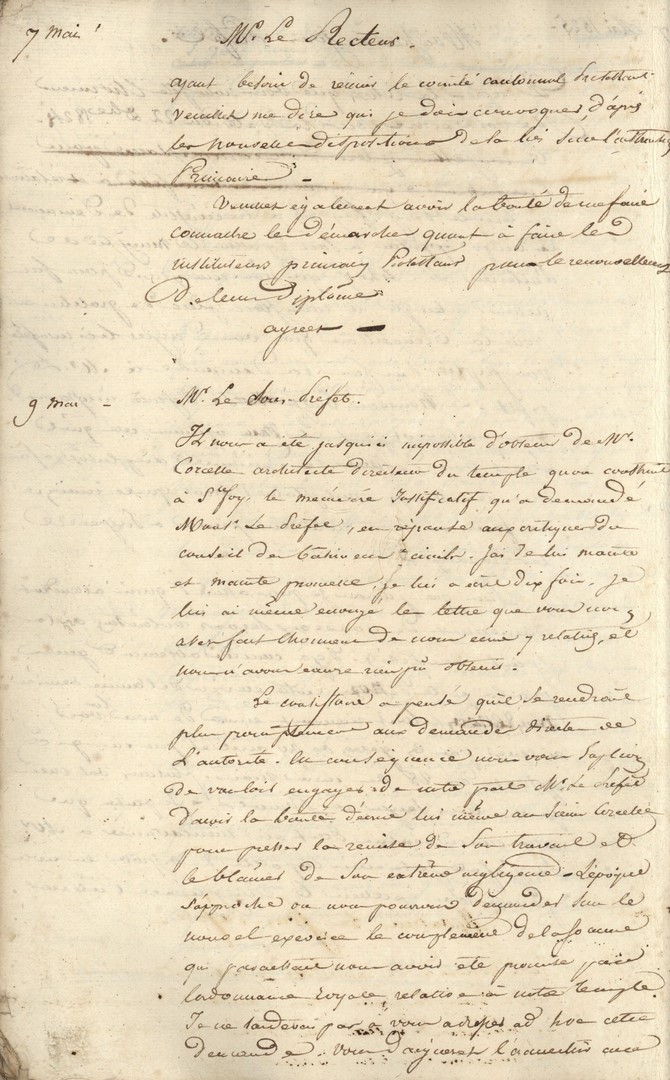 7 mai
Mr. Le Recteur.
ayant besoin de réunir le comité cantonnal Protestant
veuillez me dire qui je dois convoquer, d'après
les nouvelles dispositions de la loi sur l'instruction
Primaire. -
Veuillez également avoir la bonté de me faire
connaitre les démarches quont à faire les
instituteurs primaires Protestans pour le renouvellement
De leur Diplôme
agréez —
9 mai -
Mr. Le Sous-Préfet.
Il nous a été jusqu'ici impossible d'obtenir de Mr.
Corcelle architecte Directeur du temple qu'on construit
à Ste foy, le mémoire Justificatif qu'a demandé
Monsr. Le Préfet, en réponse aux critiques du
conseil des bâtimens civils. J'ai de lui mainte
et mainte promesse. je lui a écrit dix fois. Je
lui ai même envoyé la lettre que vous nous
avez fait l'honneur de nous écrire y relative, et
nous n'avons encore rien pû obtenir.
Le consistoire a pensé qu'il se rendroit
plus promptement aux demandes directes de
L'autorité. En conséquence nous vous
de vouloir engager de notre part Mr. Le Préfet
d'avoir la bonté d'écrire lui même au Sieur Corcelle
pour presser la remise de Son travail et
le blâmer de Son extrême négligence - L'époque
s'approche ou nous pourrons demander sur le
nouvel exercice le complément de la somme
qui nous avoir été promise par
l'ordonnance Royale relative à notre temple.
Je ne tarderai pas à vous adresser ad hoc cette
demande. vous daignerez l'accueillir avec